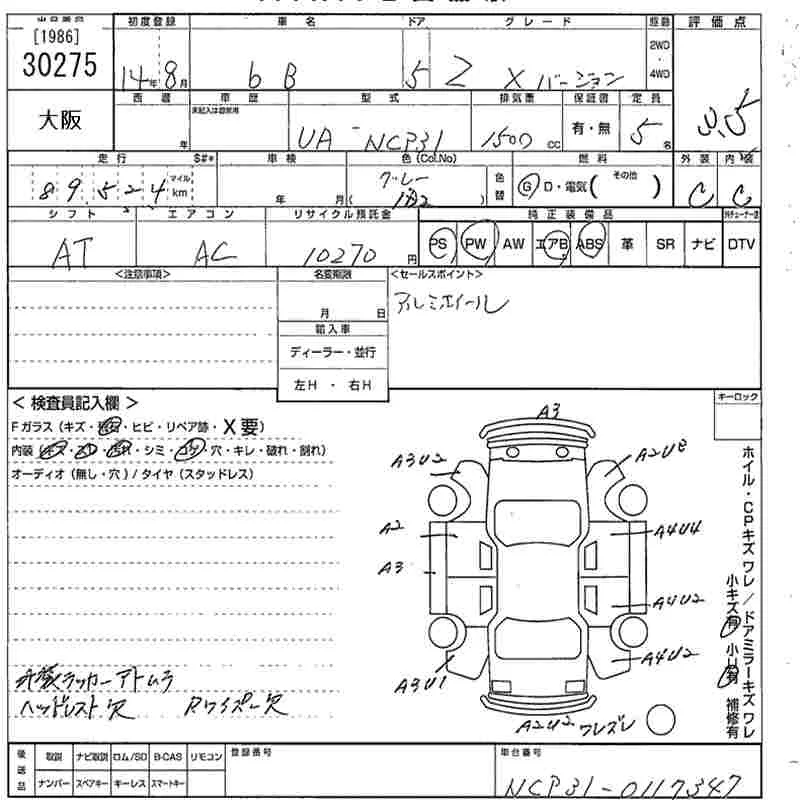 [1986]
30275
大阪
初度登録 車名 ドア グレード 評価点
14年 8月 bB 5 Z Xバージョン 2WD・4WD 3.5
西暦 車歴 型式 排気量 保証書 定員
未記入は自家用
年 UA-NCP31 1500 CC 有・無 5名
走行 S#* 車検 色(Col.No) 燃料 外装 内装
89,524 マイル km 年 月 グレー ( 1B2 ) 色替 G D・電気( その他 ) C C
シフト エアコン リサイクル預託金 純正装備品
AT AC 10270円 PS PW AW エアB ABS 革 SR ナビ DTV
<注意事項> 名変期限 <セールスポイント>
月 日 アルミホイール
輸入車
ディーラー・並行
左H・右H
キーロック
<検査員記入欄>
Fガラス(キズ・ ・ヒビ・リペア跡・X要)
内装( ・ ・ ・シミ・ ・穴・キレ・破れ・割れ)
オーディオ(無し・穴)/タイヤ(スタッドレス)
A3
A3U2 A2U2
A2 A4U4
A3 A4U2
A3U1 A4U2
A2U2 ワレズレ
ホイル・CPキズ ワレ/ドアミラーキズ ワレ
小キズ有 小U有 補修有
外装ラッカーアトムラ
ヘッドレスト欠 Rワイパー欠
後送品 取説 ナビ取説 ロム/SD B-CAS リモコン 登録番号 車台番号
ナンバー スペアキー キーレス スマートキー NCP31-0117347